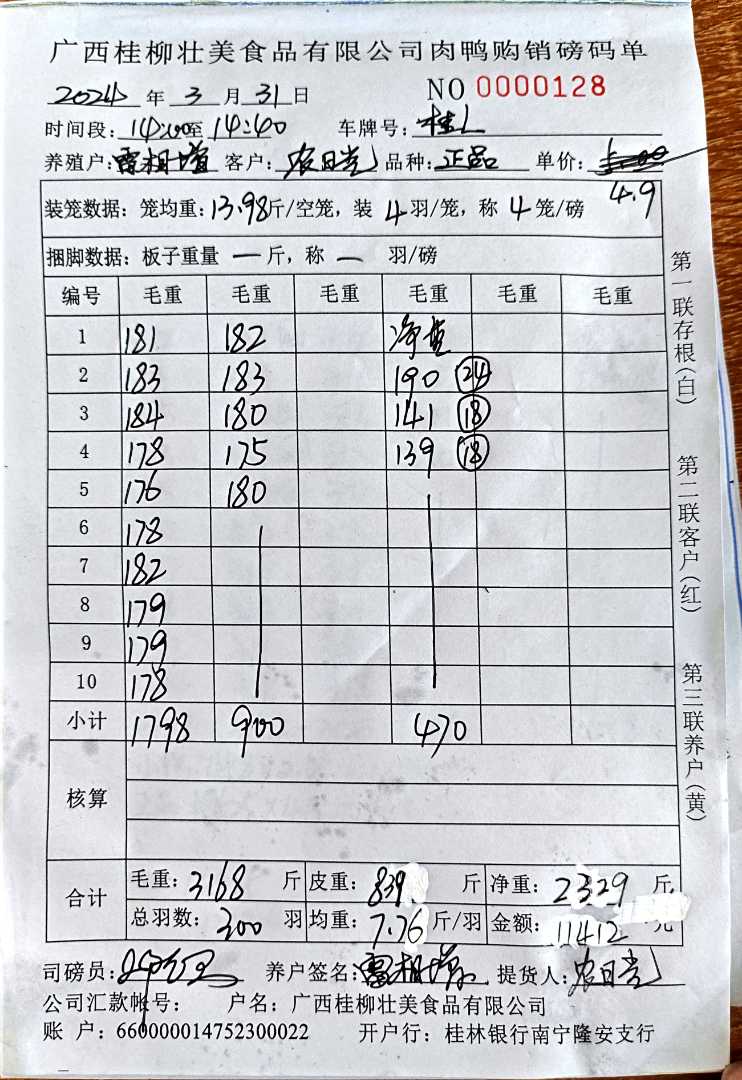 广西桂柳壮美食品有限公司肉鸭购销磅码单
2024年3月31日 NO 0000128
时间段:14:00至14:40 车牌号:桂L
养殖户:雷相增 客户:农日光 品种:正品 单价:
4.9
装笼数据:笼均重:13.98斤/空笼,装4羽/笼,称4笼/磅
捆脚数据:板子重量 — 斤,称 — 羽/磅
编号 毛重 毛重 毛重 毛重 毛重 毛重
1 181 182 净重
2 183 183 190 24
3 184 180 141 18
4 178 175 139 18
5 176 180
6 178
7 182
8 179
9 179
10 178
小计 1798 900 470
核算
合计 毛重:3168斤 皮重:839斤 净重:2329斤
总羽数:300羽 均重:7.76斤/羽 金额:11412元
司磅员: 养户签名:雷相增 提货人:农日光
公司汇款帐号: 户名:广西桂柳壮美食品有限公司
账 户:660000014752300022 开户行:桂林银行南宁隆安支行
第一联存根(白)
第二联客户(红)
第三联养户(黄)